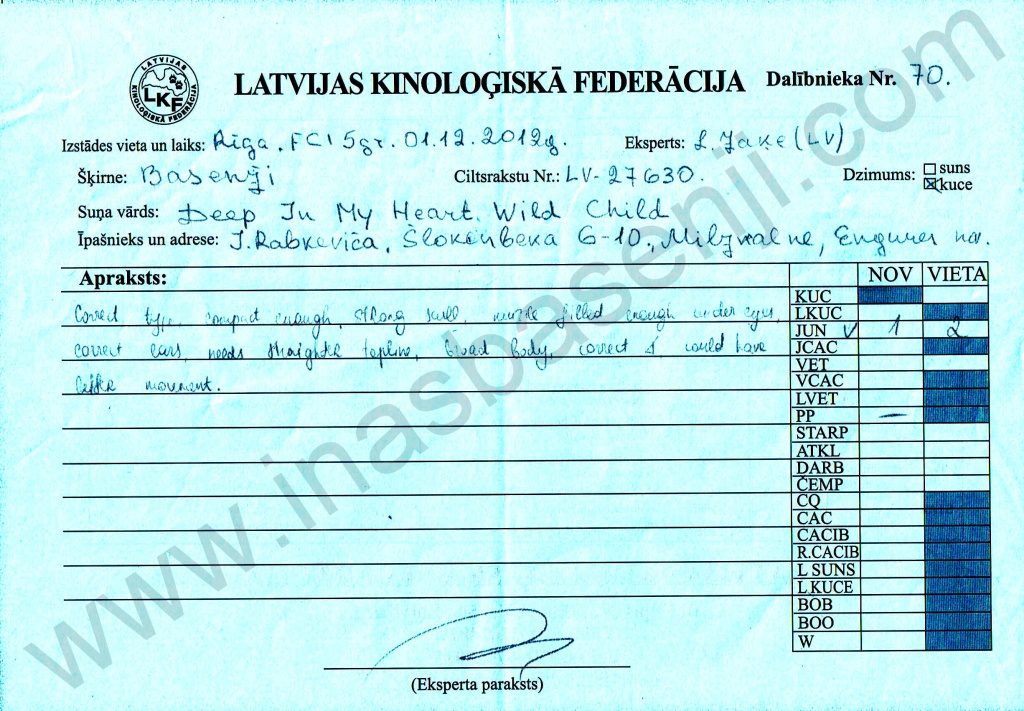 LATVIJAS KINOLOĢISKĀ FEDERĀCIJA
LKF
LATVIJAS KINOLOĢISKĀ FEDERĀCIJA Dalībnieka Nr. 70.
Izstādes vieta un laiks: Rīga, FCI 5gr. 01.12.2012g. Eksperts: L. Jaķe (LV)
Šķirne: Basenji Ciltsrakstu Nr.: LV-27630. Dzimums: suns
kuce
Suņa vārds: Deep In My Heart Wild Child
Īpašnieks un adrese: J. Rabkeviča, Šlokenbeka 6-10, Milzkalne, Engures nov.
Apraksts: NOV VIETA
KUC
Correct type, compact enough, strong skull, muzzle filled enough under eyes, LKUC
JUN V 1 2
correct ears, needs straighter topline, broad body, correct & could have JCAC
VET
better movement. VCAC
LVET
PP –
STARP
ATKL
DARB
ČEMP
CQ
CAC
CACIB
R.CACIB
L SUNS
L.KUCE
BOB
BOO
W
(Eksperta paraksts)
www.inasbasenji.com